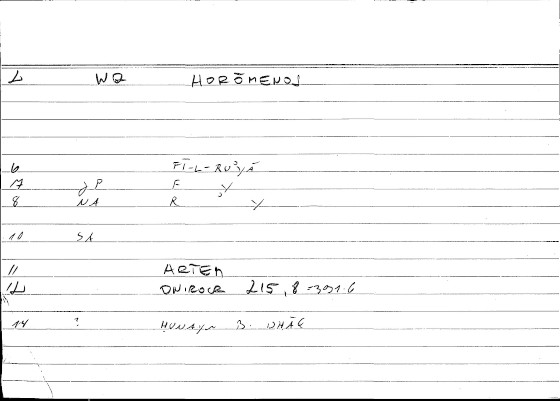 WQ HORŌMENOJ
6 FĪ-L-RU'YĀ
17 JP F Y
8 NA R Y
10 SA
11 ARTEM
ONIROCR 215, 8 = 391.6
14 ? HUNAYN B. ISHĀQ